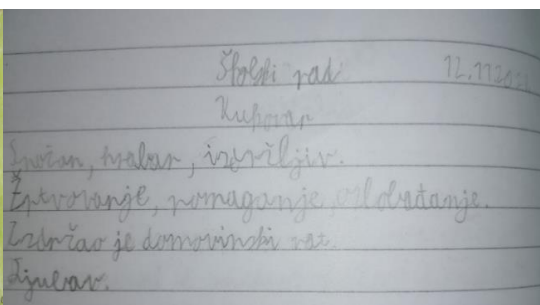 Školski rad 12.11.2021
Vukovar
Snažan, hrabar, izdržljiv.
Žrtvovanje, pomaganje, oslobađanje.
Izdržao je domovinski rat.
Ljubav.